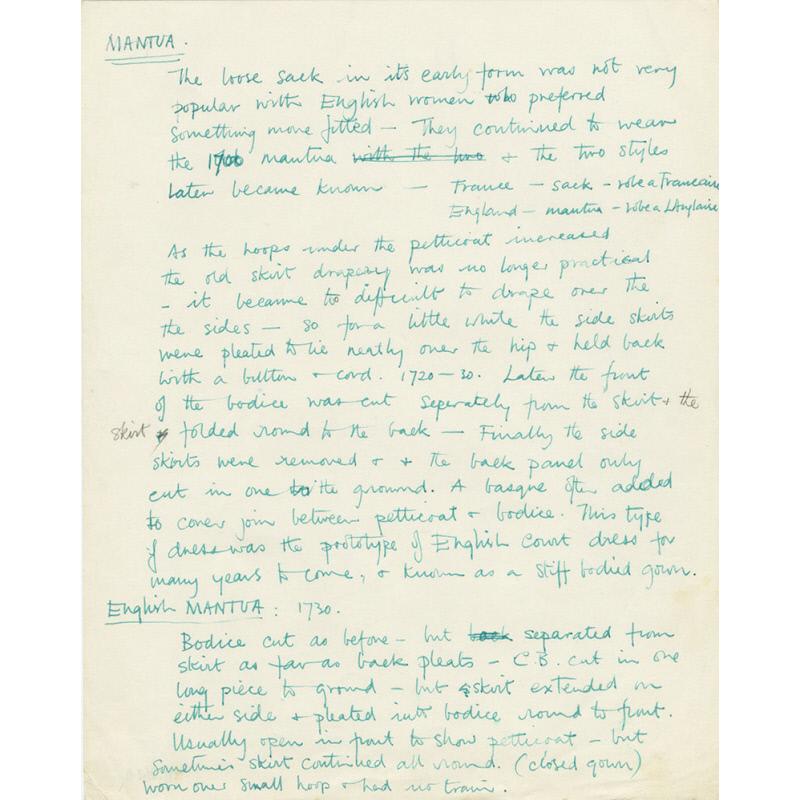 MANTUA.
The loose sack in its early form was not very
popular with English women who preferred
something more fitted — They continued to wear
the 1700 mantua with the two & the two styles
later became known — France — sack - robe a Francaise
England — mantua - robe a L'Anglaise
As the hoops under the petticoat increased
the old skirt draping was no longer practical
- it became too difficult to drape over the
the sides — so for a little while the side skirts
were pleated to lie neatly over the hip & held back
with a button & cord. 1720-30. Later the front
of the bodice was cut seperately from the skirt & the
skirt folded round to the back — Finally the side
skirts were removed & & the back panel only
cut in one to the ground. A basque often added
to cover join between petticoat & bodice. This type
of dress was the prototype of English Court dress for
many years to come, & known as a stiff bodied gown.
English MANTUA : 1730.
Bodice cut as before - but back separated from
skirt as far as back pleats - C.B. cut in one
long piece to ground - but skirt extended on
either side & pleated into bodice round to front.
Usually open in front to show petticoat - but
sometimes skirt continued all round. (closed gown)
worn over small hoop & had no train.